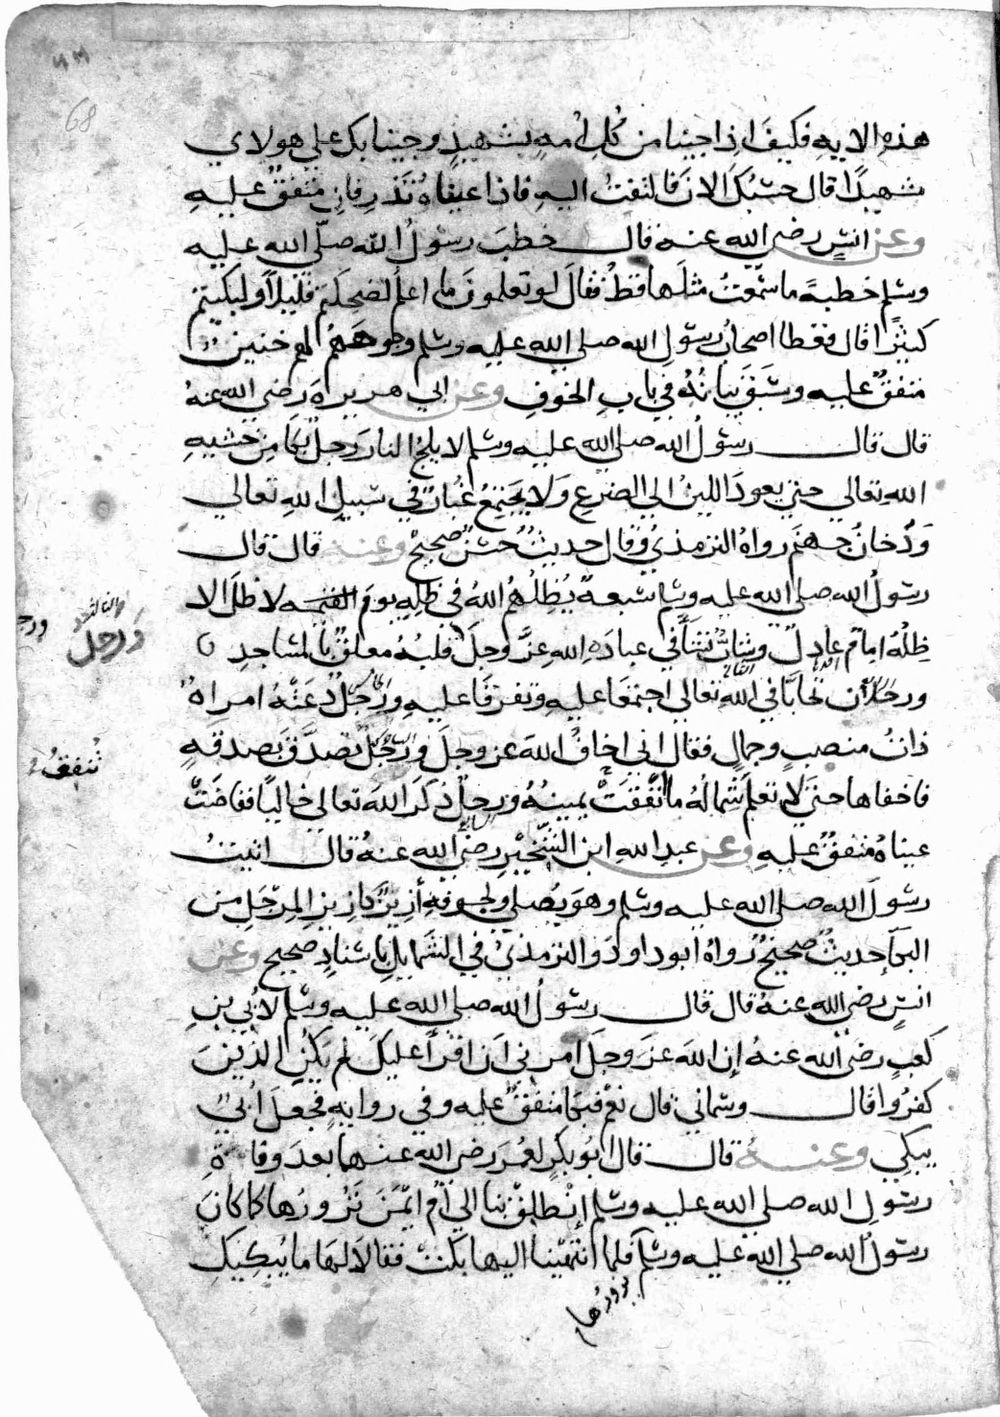 68
هذه الايه فكيف اذا جينا من كل امه بشهيد وجينا بك علي هولاي
شهيدًا قال حسبك الان فالتفت اليه فاذا عيناه تذرفان متفق عليه
وعن انس رضي الله عنه قال خطب رسول الله صلى الله عليه
وسلم خطبة ما سمعت مثلها قط فقال لو تعلمون ما اعلم لضحكتم قليلاً ولبكيتم
كثيرًا قال فغطا اصحاب رسول الله صلي الله عليه وسلم وجوههم لهم خنين
متفق عليه وسبق بيانه في باب الخوف وعن ابي هريراة رضي الله عنه
قال قال رسول الله صلي الله عليه وسلم لا يلج النار رجل بكا من خشيه
الله تعالي حتي يعود اللبن الي الضرع ولا يجتمع غبار في سبيل الله تعالي
ودخان جهنم رواه الترمذي وقال حديث حسن صحيح وعنه قال قال
رسول الله صلي الله عليه وسلم سبعة يظلهم الله في ظله يوم القيمه لا ظل الا
ظله امام عادل وشاب نشأ في عباده الله عز وجل قلبه معلق بالمساجد
ورجل
ورجلان تحابا في الله تعالي اجتمعا عليه وتفرقا عليه ورجل دعته امراه
ذات منصب وجمال فقال اني اخاف الله عز وجل ورجل تصدق بصدقه
تنفق
فاخفاها حتى لا تعلم شماله ما انفقت يمينه ورجل ذكر الله تعالي خاليًا ففاضت
عيناه متفق عليه وعن عبد الله ابن الشخير رضي الله عنه قال اتيت
رسول الله صلي الله عليه وسلم وهو يصلي ولجوفه أزيز كازيز المرجل من
البكا حديث صحيح رواه ابو داود والترمذي في الشمايل باسناد صحيح وعن
انس رضي الله عنه قال قال رسول الله صلي الله عليه وسلم لأبي بن
كعب رضي الله عنه إن الله عز وجل امرني ان اقرأ عليك لم يكن الذين
كفروا قال وسماني قال نعم فبكا متفق عليه وفي روايه فجعل ابي
يبكي وعنه قال قال ابو بكر لعمر رضي الله عنهما بعد وفاة
رسول الله صلي الله عليه وسلم انطلق بنا الي أم ايمن نزورها كما كان
رسول الله صلي الله عليه وسلم فلما انتهينا اليها بكت فقالا لها ما يبكيك
يزورها